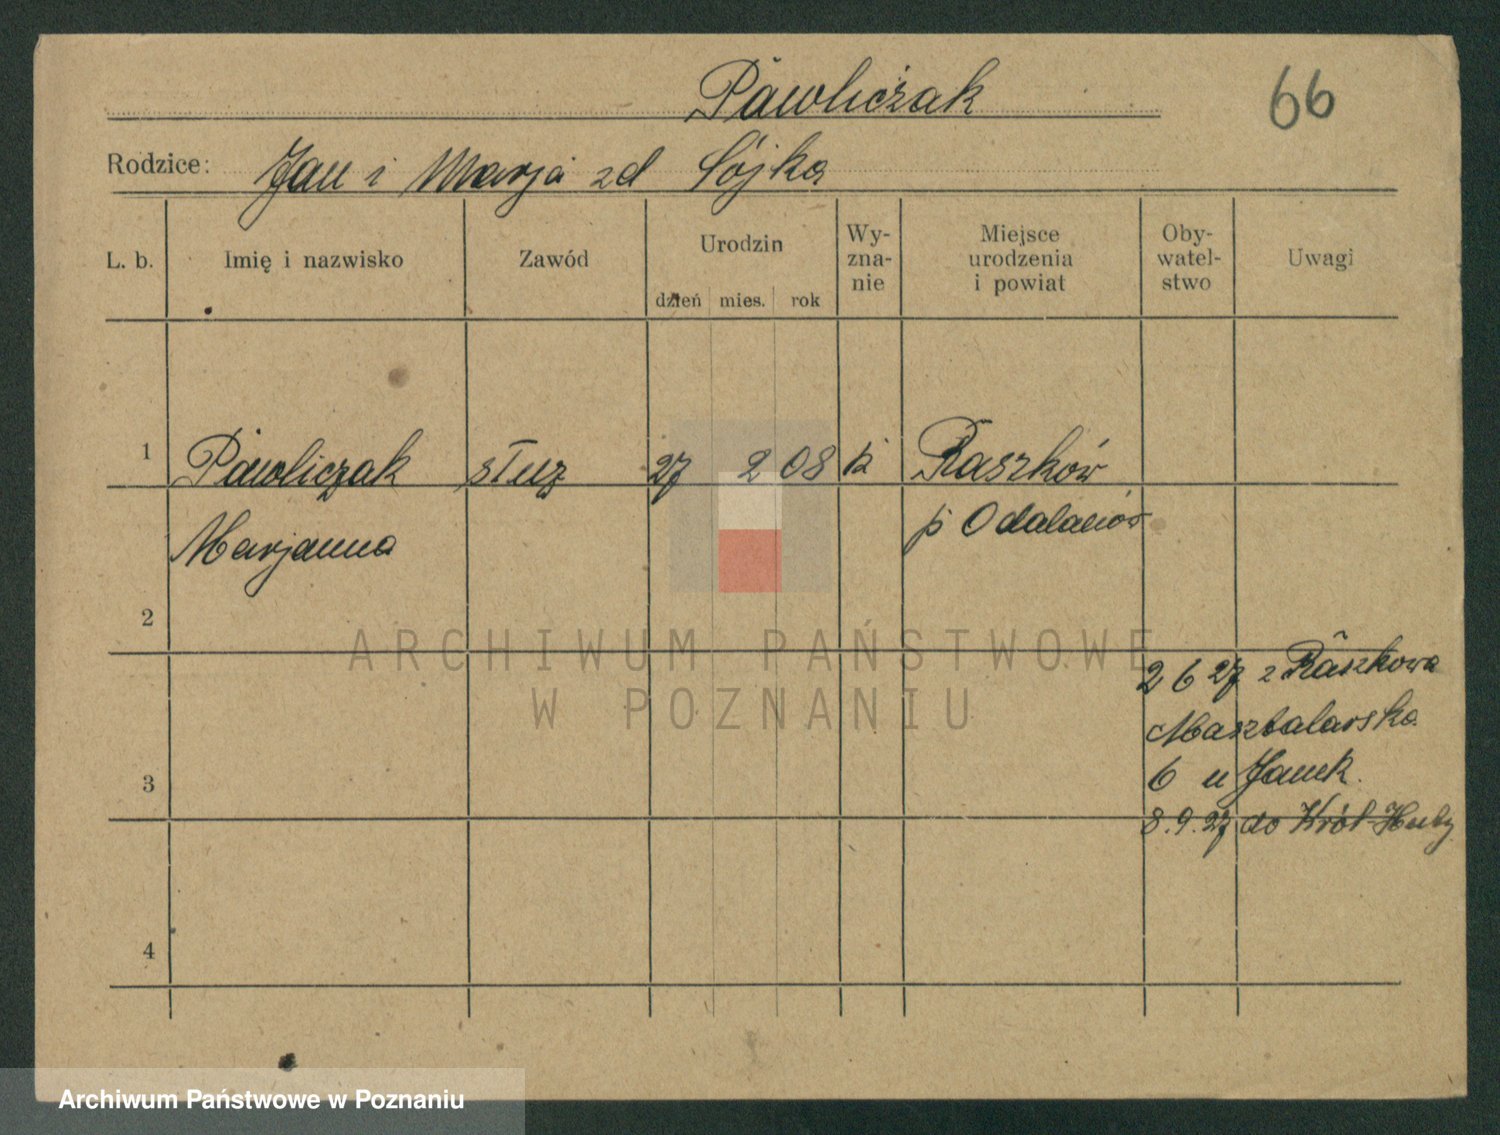 Pawliczak
66
Rodzice: Jan i Marja zd Sójka
L. b. Imię i nazwisko Zawód Urodzin dzień mies. rok Wy-zna-nie Miejsce urodzenia i powiat Oby-watel-stwo Uwagi
1 Pawliczak słuz 27 2 08 k Raszków
Marjanna p Odalanów
2
2 6 27 z Raszkowa
Masztalarska
3 6 u Janek.
8.9.27 do Król-Huby
4
ARCHIWUM PAŃSTWOWE
W POZNANIU
Archiwum Państwowe w Poznaniu